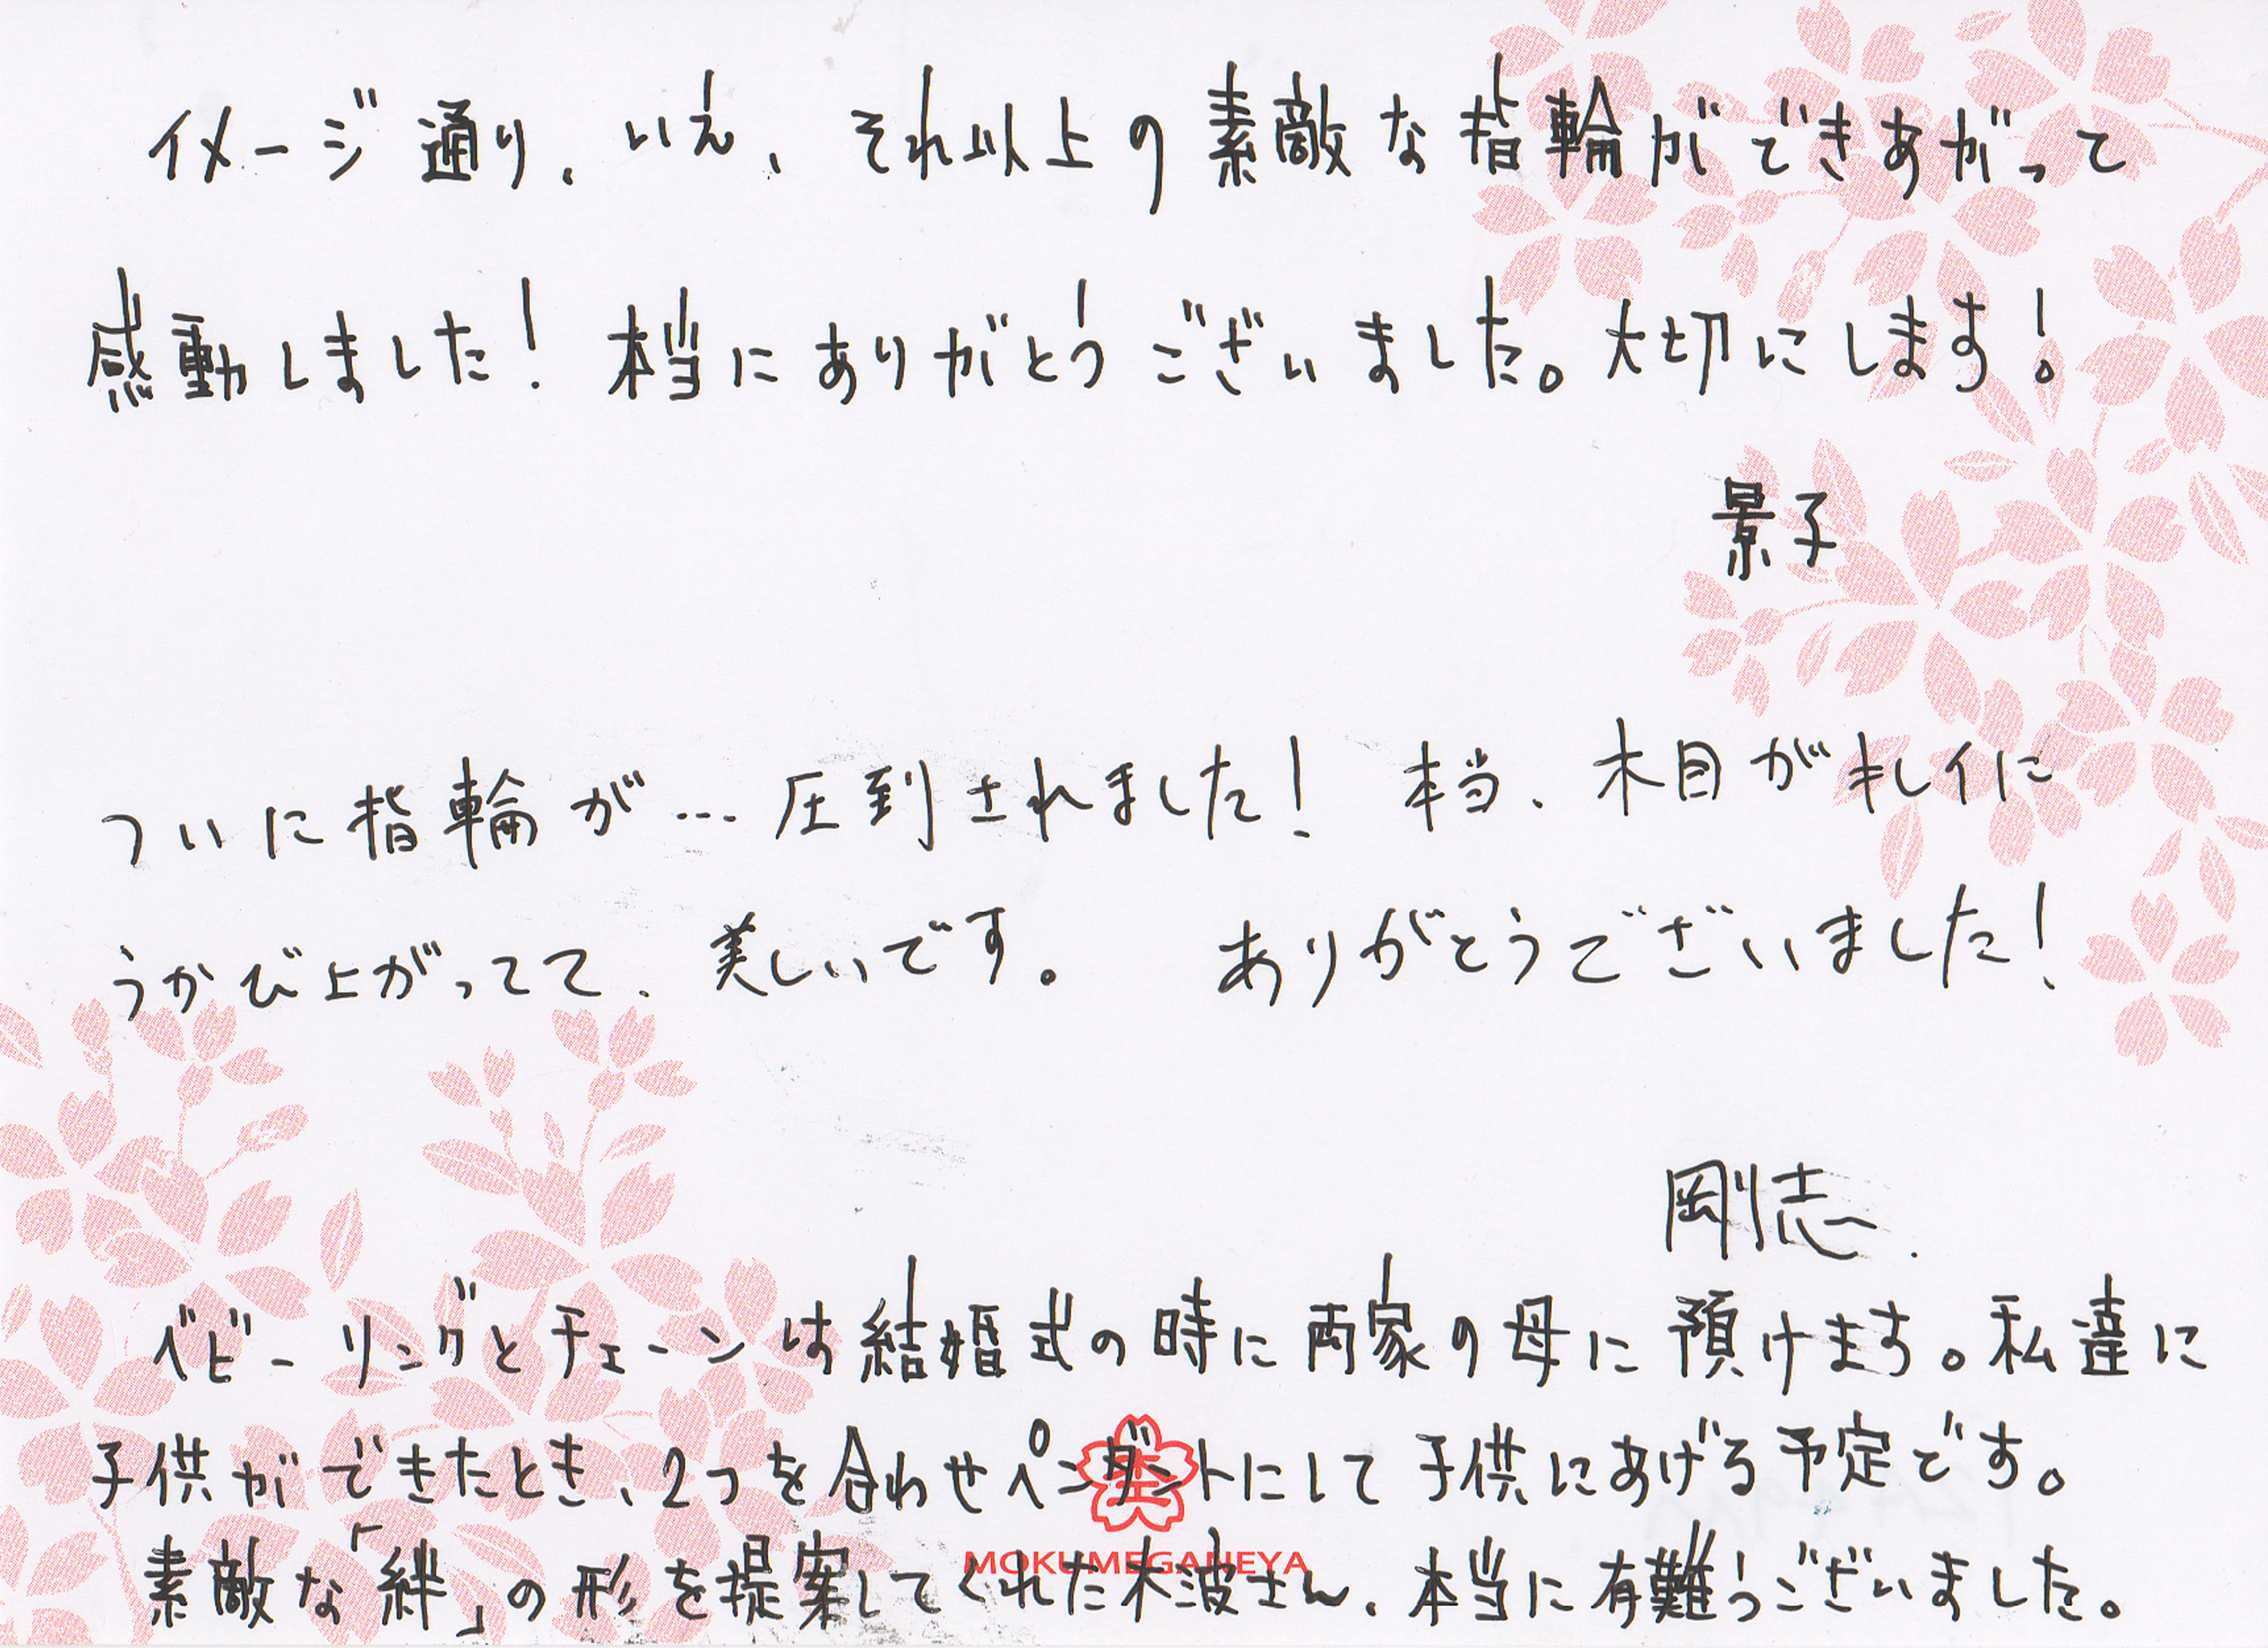 イメージ通り、いえ、それ以上の素敵な指輪ができあがって
感動しました!本当にありがとうございました。大切にします!
景子
ついに指輪が…圧到されました!本当、木目がキレイに
うかび上がってて、美しいです。ありがとうございました!
剛志.
ベビーリングとチェーンは結婚式の時に両家の母に預けます。私達に
子供ができたとき、2つを合わせペンダントにして子供にあげる予定です。
MOKUMEGANEYA
素敵な「絆」の形を提案してくれた木波さん、本当に有難うございました。